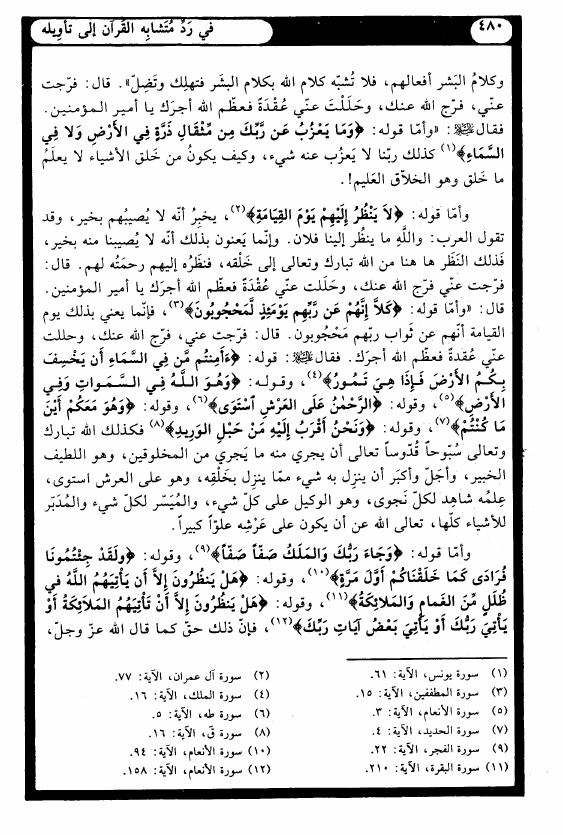 ٤٨٠
في رَدِّ مُتَشابِه القُرآن إلى تأوِيله
وكلامُ البَشر أفعالهم، فلا تُشبّه كلام الله بكلام البشَر فتهلِك وتَضِلّ». قال: فرّجت
عنّي، فرّج الله عنك، وحَلَلْتَ عنّي عُقْدَةً فعظّم الله أجرَك يا أمير المؤمنين.
فقال ﷺ: «وأمّا قوله: ﴿وَمَا يَعْزُبُ عَن رَّبِّكَ مِن مِّثْقَالِ ذَرَّةٍ فِي الأَرْضِ وَلَا فِي
السَّمَاءِ﴾(١) كذلك ربّنا لا يَعزُب عنه شيء، وكيف يكونُ من خَلق الأشياء لا يعلَمُ
ما خَلق وهو الخلاّق العَليم!.
وأمّا قوله: ﴿لاَ يَنْظُرُ إِلَيْهِمْ يَوْمَ القِيَامَةِ﴾(٢)، يخبِرُ أنّه لا يُصيبُهم بخير، وقد
تقول العرب: واللَّهِ ما ينظُر إلينا فلان. وإنّما يَعنون بذلك أنّه لا يُصيبنا منه بخير،
فَذلك النَظَر ها هنا من الله تبارك وتعالى إلى خَلْقه، فنظَرُه إليهم رحمَتُه لهم. قال:
فرّجت عنّي فرّج الله عنك، وحَللت عنّي عُقدَةً فعظّم الله أجرَك يا أمير المؤمنين.
قال: «وأمّا قوله: ﴿كَلاَّ إِنَّهُمْ عَن رَّبِّهِم يَوْمَئِذٍ لَّمَحْجُوبُونَ﴾(٣)، فإنّما يعني بذلك يوم
القيامة أنّهم عن ثَواب ربّهم مَحْجُوبون. قال: فرّجت عني، فرّج الله عنك، وحللت
عنّي عُقدةً فعظّم الله أجرَك. فقال ﷺ: قوله: ﴿ءَأَمِنتُم مَّن فِي السَّمَاءِ أَن يَخْسِفَ
بِكُمُ الأَرْضَ فَإِذَا هِيَ تَمُورُ﴾(٤)، وقوله: ﴿وَهُوَ اللَّهُ فِي السَّمَوَاتِ وَفِي
الأَرْضِ﴾(٥)، وقوله: ﴿الرَّحْمٰنُ عَلَى العَرْشِ اسْتَوَى﴾(٦)، وقوله: ﴿وَهُوَ مَعَكُمْ أَيْنَ
مَا كُنْتُمْ﴾(٧)، وقوله: ﴿وَنَحْنُ أَقْرَبُ إِلَيْهِ مَنْ حَبْلِ الوَرِيدِ﴾(٨) فكذلك الله تبارك
وتعالى سُبّوحاً قُدّوساً تعالى أن يجري منه ما يَجري من المخلوقين، وهو اللطيف
الخبير، وأجَلّ وأكبَر أن ينزِل به شيء ممّا ينزِل بخَلْقِه، وهو على العرش استوى،
عِلمُه شاهِد لكلّ نَجوى، وهو الوكيل على كلّ شيء، والمُيَسّر لكلّ شيء والمُدَبّر
للأشياء كلّها، تعالى الله عن أن يكون على عَرْشِه علوّاً كبيراً.
وأمّا قوله: ﴿وَجَاءَ رَبُّكَ وَالمَلَكُ صَفّاً صَفّاً﴾(٩)، وقوله: ﴿ولَقَدْ جِئْتُمُونَا
فُرَادَى كَمَا خَلَقْنَاكُمْ أَوَّلَ مَرَّةٍ﴾(١٠)، وقوله: ﴿هَلْ يَنظُرُونَ إِلاَّ أَن يَأْتِيَهُمُ اللَّهُ في
ظُلَلٍ مِّنَ الغَمامِ وَالمَلائِكَةُ﴾(١١)، وقوله: ﴿هَلْ يَنظُرُونَ إِلاَّ أَنْ تَأْتِيَهُمُ المَلاَئِكَةُ أَوْ
يَأْتِيَ رَبُّكَ أَوْ يَأْتِيَ بَعْضُ آيَاتِ رَبِّكَ﴾(١٢)، فإنّ ذلك حقّ كما قال الله عزّ وجلّ،
(١) سورة يونس، الآية: ٦١.
(٢) سورة آل عمران، الآية: ٧٧.
(٣) سورة المطففين، الآية: ١٥.
(٤) سورة الملك، الآية: ١٦.
(٥) سورة الأنعام، الآية: ٣.
(٦) سورة طه، الآية: ٥.
(٧) سورة الحديد، الآية: ٤.
(٨) سورة قۤ، الآية: ١٦.
(٩) سورة الفجر، الآية: ٢٢.
(١٠) سورة الأنعام، الآية: ٩٤.
(١١) سورة البقرة، الآية: ٢١٠.
(١٢) سورة الأنعام، الآية: ١٥٨.